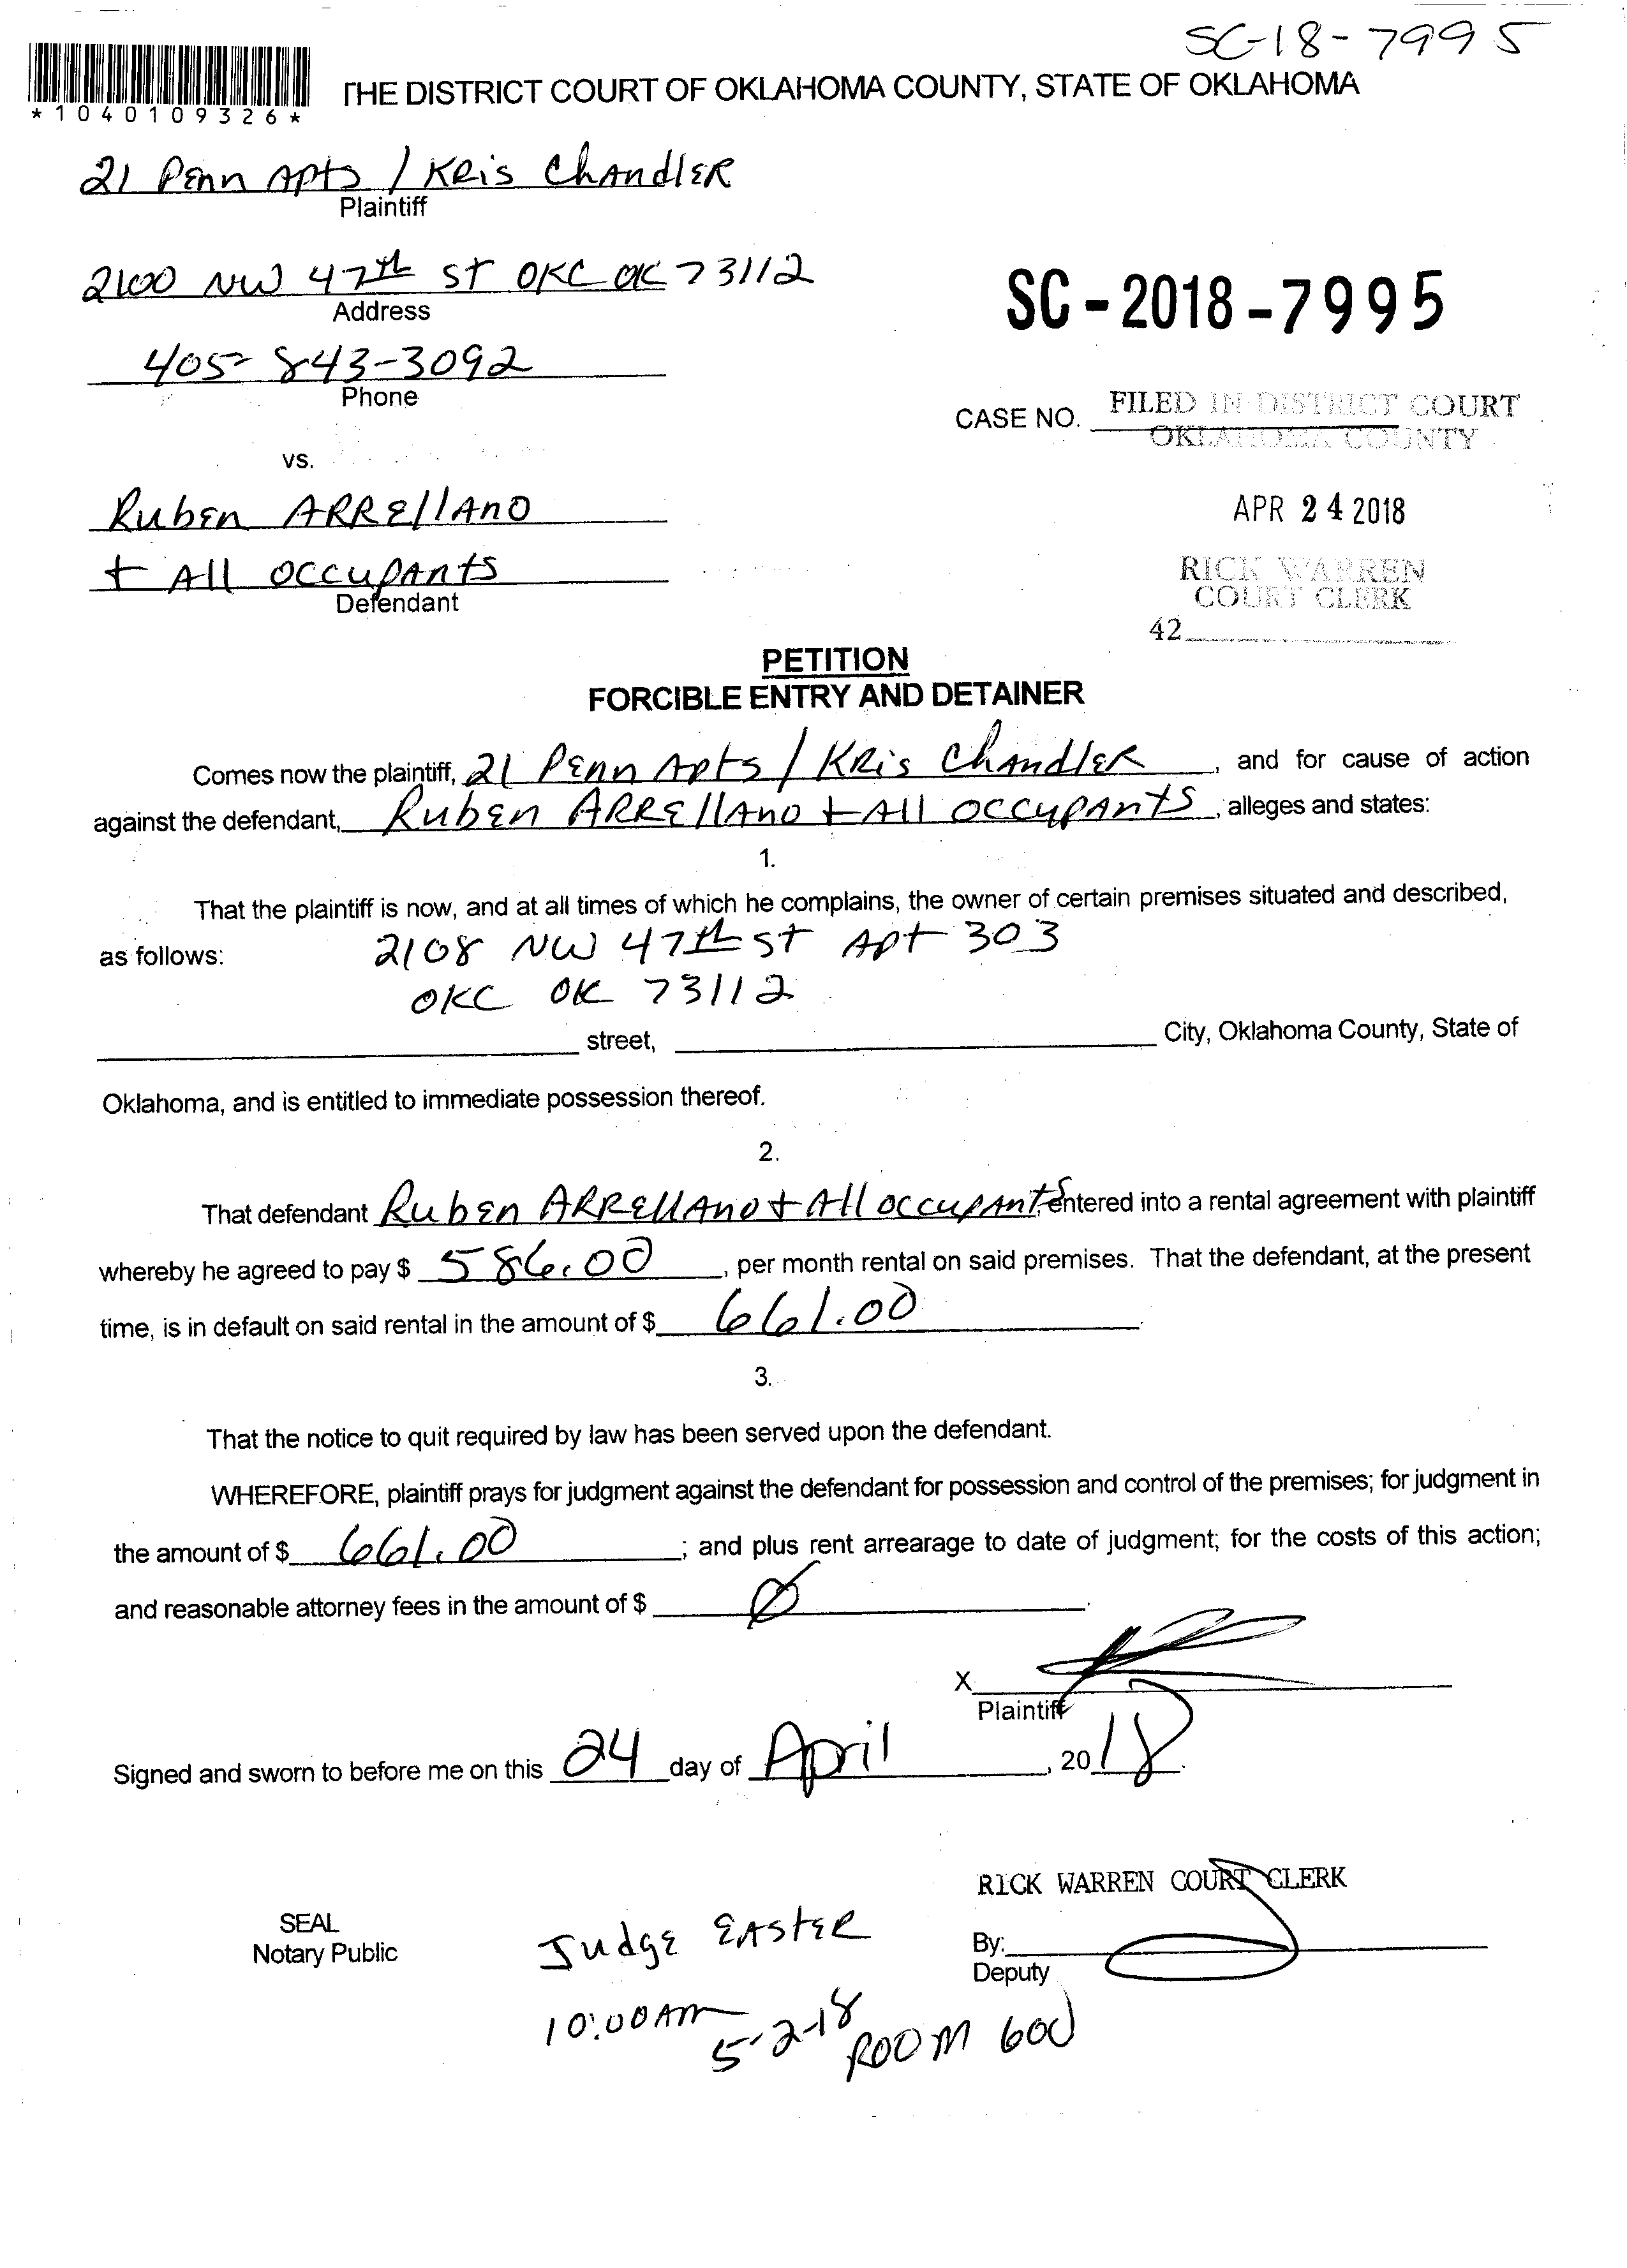 SC-18-7995
THE DISTRICT COURT OF OKLAHOMA COUNTY, STATE OF OKLAHOMA
*1040109326*
21 Penn Apts / Kris Chandler
Plaintiff
2100 NW 47th St OKC OK 73112
Address
SC-2018-7995
405-843-3092
Phone
CASE NO.
FILED IN DISTRICT COURT
OKLAHOMA COUNTY
vs.
Ruben Arrellano
APR 24 2018
+ All occupants
Defendant
RICK WARREN
COURT CLERK
42
PETITION
FORCIBLE ENTRY AND DETAINER
Comes now the plaintiff, 21 Penn Apts / Kris Chandler, and for cause of action
against the defendant, Ruben Arrellano + All occupants, alleges and states:
1.
That the plaintiff is now, and at all times of which he complains, the owner of certain premises situated and described,
as follows: 2108 NW 47th St Apt 303
OKC OK 73112
street, City, Oklahoma County, State of
Oklahoma, and is entitled to immediate possession thereof.
2.
That defendant Ruben Arrellano + All occupants, entered into a rental agreement with plaintiff
whereby he agreed to pay $ 586.00, per month rental on said premises. That the defendant, at the present
time, is in default on said rental in the amount of $ 661.00.
3.
That the notice to quit required by law has been served upon the defendant.
WHEREFORE, plaintiff prays for judgment against the defendant for possession and control of the premises; for judgment in
the amount of $ 661.00; and plus rent arrearage to date of judgment; for the costs of this action;
and reasonable attorney fees in the amount of $ Ø.
X
Plaintiff
Signed and sworn to before me on this 24 day of April, 2018.
RICK WARREN COURT CLERK
SEAL
Notary Public
Judge Easter
By:
Deputy
10:00 AM
5-2-18
Room 600